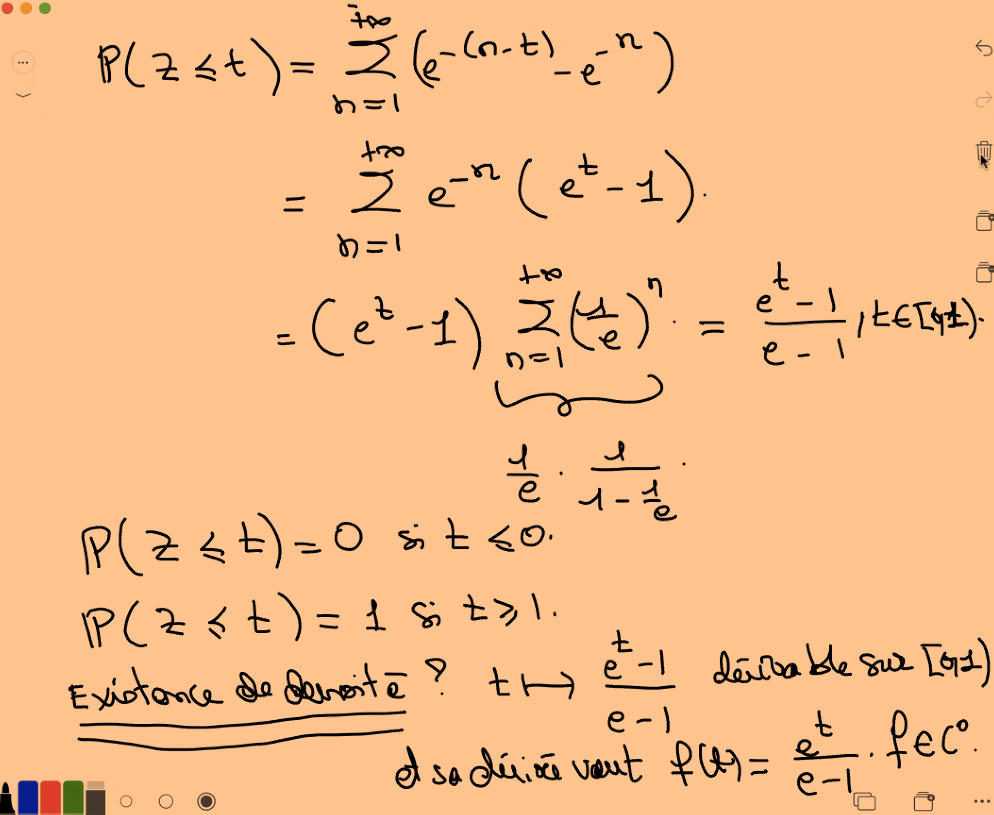 P(Z ≤ t) = ∑_{n=1}^{+∞} (e^{-(n-t)} - e^{-n})
= ∑_{n=1}^{+∞} e^{-n} (e^t - 1).
= (e^t - 1) ∑_{n=1}^{+∞} (1/e)^n . = (e^t - 1)/(e - 1) , t ∈ [0,1).
1/e . 1/(1 - 1/e) .
P(Z ≤ t) = 0 si t ≤ 0.
P(Z ≤ t) = 1 si t ≥ 1.
Existance de densité ? t ↦ (e^t - 1)/(e - 1) dérivable sur [0,1)
et sa dérivée vaut f(t) = e^t/(e-1) . f ∈ C⁰.